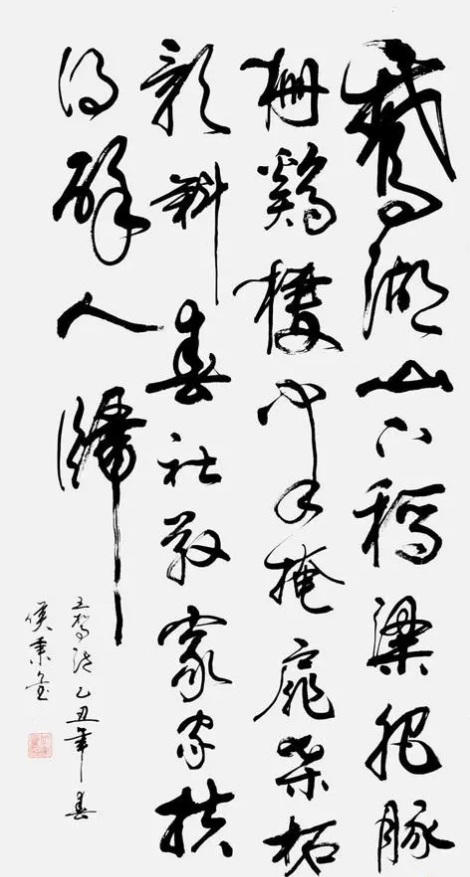 鵝湖山下稻粱肥豚
柵鷄棲半掩扉桑柘
影斜春社散家家扶
得醉人歸
王駕詩乙丑年春
侯秉